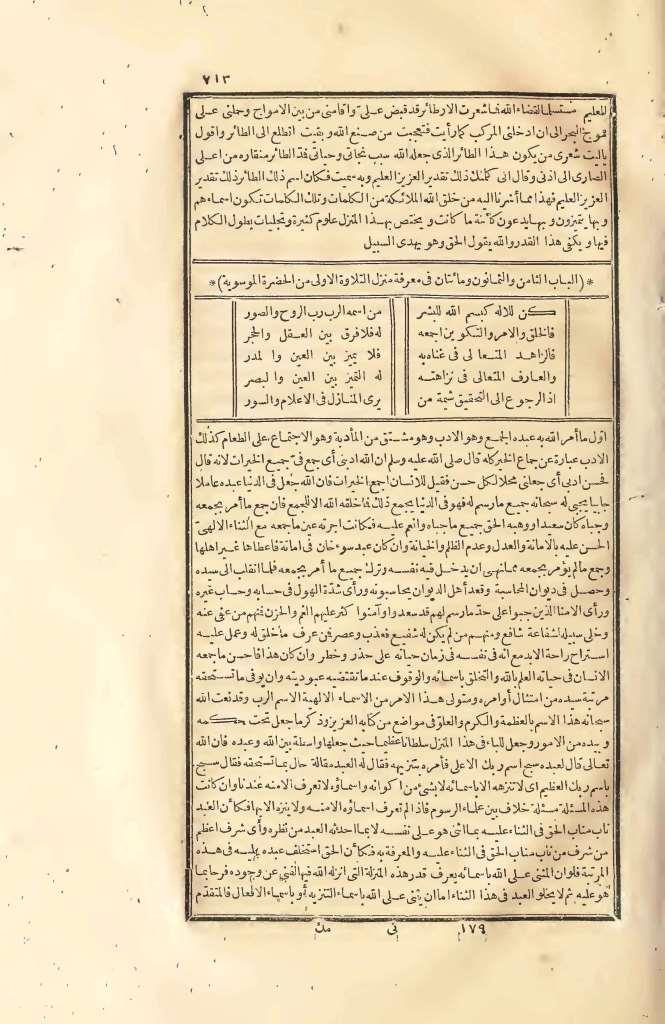 ٧١٣
للعليم مستسلما لقضاء الله فما شعرت الا بطائر قد قبض علىّ وأقامنى من بين الامواج وحملنى على
موج البحر الى ان ادخلنى المركب كما رأيت فتعجبت من صنع الله وبقيت اتطلع الى الطائر وأقول
ياليت شعرى من يكون هذا الطائر الذى جعله الله سبب نجاتى وحياتى فمدّ الطائر منقاره من اعلى
الصارى الى اذنى وقال انى كلمتك ذلك تقدير العزيز العليم وبه سميت فكان اسم ذلك الطائر ذلك تقدير
العزيز العليم فهذا مما أشرنا اليه من خلق الله الملائكة من الكلمات وتلك الكلمات تكون اسماءهم
وبها يتميزون وبها يدعون كائنة ما كانت ويختص بهذا المنزل علوم كثيرة وتجليات يطول الكلام
فيها ويكفى هذا القدر والله يقول الحق وهو يهدى السبيل
* (الباب الثامن والثمانون ومائتان فى معرفة منزل التلاوة الاولى من الحضرة الموسوية) *
كن للاله كبسم الله للبشر من اسمه الرب رب الروح والصور
فالخلق والامر والتكوين اجمعه له فلا فرق بين العقل والحجر
فالزاهد المتعالى فى غناه به فلا يميز بين العين والمدر
والعارف المتعالى فى نزاهته له التميز بين العين والبصر
اذ الرجوع الى التحقيق شيمة من يرى المنازل فى الاعلام والسور
اوّل ما أمر الله به عبده الجمع وهو الادب وهو مشتق من المأدبة وهو الاجتماع على الطعام كذلك
الادب عبارة عن جماع الخير كله قال صلى الله عليه وسلم ان الله ادبنى أى جمع فىّ جميع الخيرات لانه قال
فحسن ادبى أى جعلنى محلا لكل حسن فقيل للانسان اجمع الخيرات فان الله جعل فى الدنيا عبده عاملا
جابيا يجبى له سبحانه جميع ما رسم له فهو فى الدنيا يجمع ذلك فما خلقه الله الا للجمع فان جمع ما أمر بجمعه
وجباه كان سعيدا ووهبه الحق جميع ما جباه وأنعم عليه فكانت اجرته عين ما جمعه مع الثناء الالهىّ
الحسن عليه بالامانة والعدل وعدم الظلم والخيانة وان كان عبد سوء خان فى امانة فأعطاها غير اهلها
وجمع ما لم يؤمر بجمعه مما نهى ان يدخل فيه نفسه وترك جميع ما أمر بجمعه فلما انقلب الى سيده
وحصل فى ديوان المحاسبة وقعد أهل الديوان يحاسبونه ورأى شدّة الهول فى حسابه وحساب غيره
ورأى الامنا الذين جبوا على حدّ ما رسم لهم قد سعدوا وآمنوا كثر عليهم الغم والحزن فمنهم من عفى عنه
وخلى سبيله لشفاعة شافع ومنهم من لم يكن له شفيع فعذب وعصر فمن عرف ما خلق له وعمل عليه
استراح راحة الابد مع انه فى نفسه فى زمان حياته على حذر وخطر وان كان هذا فأحسن ما جمعه
الانسان فى حياته العلم بالله والتخلق بأسمائه والوقوف عند ما تقتضيه عبوديته وان يوفى ما تستحقه
مرتبة سيده من امتثال أوامره ومتولى هذا الامر من الاسماء الالهية الاسم الرب وقد نعت الله
سبحانه هذا الاسم بالعظمة والكرم والعلوّ فى مواضع من كتابه العزيز وذكر ما جعل تحت حكمه
وبيده من الامور وجعل للباء فى هذا المنزل سلطانا عظيما حيث جعلها واسطة بين الله وعبده فان الله
تعالى قال لعبده سبح اسم ربك الاعلى فأمره بتنزيهه فقال له العبد مقالة حال بما تستحقه فقال سبح
باسم ربك العظيم اى لا تنزهه الا بأسمائه لا بشئ من اكوانه وأسماؤه لا تعرف الا منه عندنا وان كانت
هذه المسئلة مسئلة خلاف بين علماء الرسوم فاذا لم تعرف اسماؤه الا منه ولا ينزه الا بها فكأن العبد
ناب مناب الحق فى الثناء عليه بما اثنى هو على نفسه لا بما احدثه العبد من نظره وأى شرف اعظم
من شرف من ناب مناب الحق فى الثناء عليه والمعرفة به فكأن الحق استخلف عبده عليه فى هذه
المرتبة فلو ان المثنى على الله بأسمائه يعرف قدر هذه المنزلة التى انزله الله فيها لفنى عن وجوده فرحا بما
هو عليه ثم لا يخلو العبد فى هذا الثناء اما ان يثنى على الله بأسماء التنزيه أو بأسماء الافعال فالمتقدّم
١٧٩ نى مك